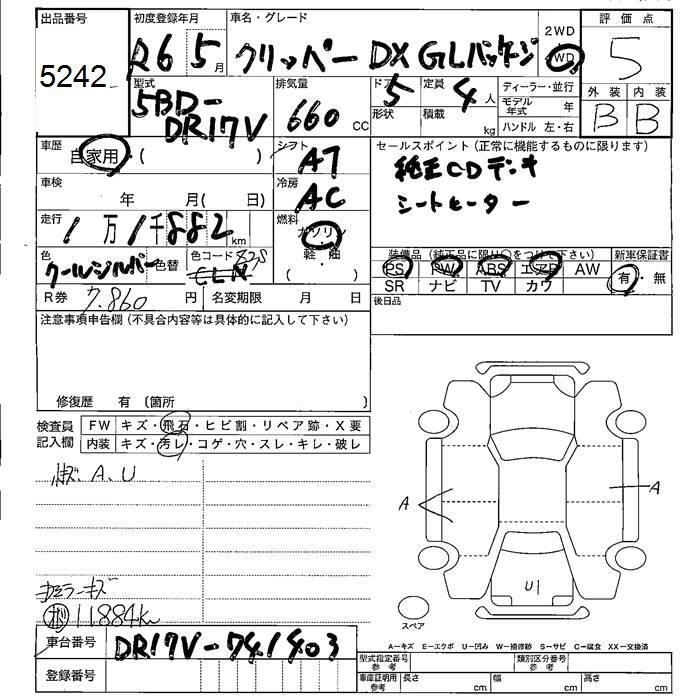 出品番号 初度登録年月 車名・グレード 評価点
5242 R6 5月 クリッパー DX GLパッケージ 2WD 4WD 5
型式 排気量 ドア 形状 定員 積載 ディーラー・並行 外装 内装
5BD-DR17V 660 CC 5 4人 kg モデル年式 年 B B
ハンドル 左・右
車歴 自家用・( ) シフト AT セールスポイント(正常に機能するものに限ります)
車検 年 月( 日) 冷房 AC 純正CDデッキ
シートヒーター
走行 1万1千882km 燃料 ガソリン 軽・油
色 クールシルバー 色替 色コード 装備品(純正品に限り○をつけ下さい) 新車保証書
PS PW ABS エアB AW 有・無
SR ナビ TV カワ
R券 7,860円 名変期限 月 日 後日品
注意事項申告欄(不具合内容等は具体的に記入して下さい)
修復歴 有〔箇所 〕
検査員記入欄 FW キズ・飛石・ヒビ割・リペア跡・X要
内装 キズ・汚レ・コゲ・穴・スレ・キレ・破レ
A、U
A A
U1
スペア
左ミラーキズ
11884km
A=キズ E=エクボ U=凹み W=補修跡 S=サビ C=腐食 XX=交換済
車台番号 DR17V-741403
型式指定番号 参考 類別区分番号 参考
登録番号 車庫証明用 参考 長さ cm 幅 cm 高さ cm